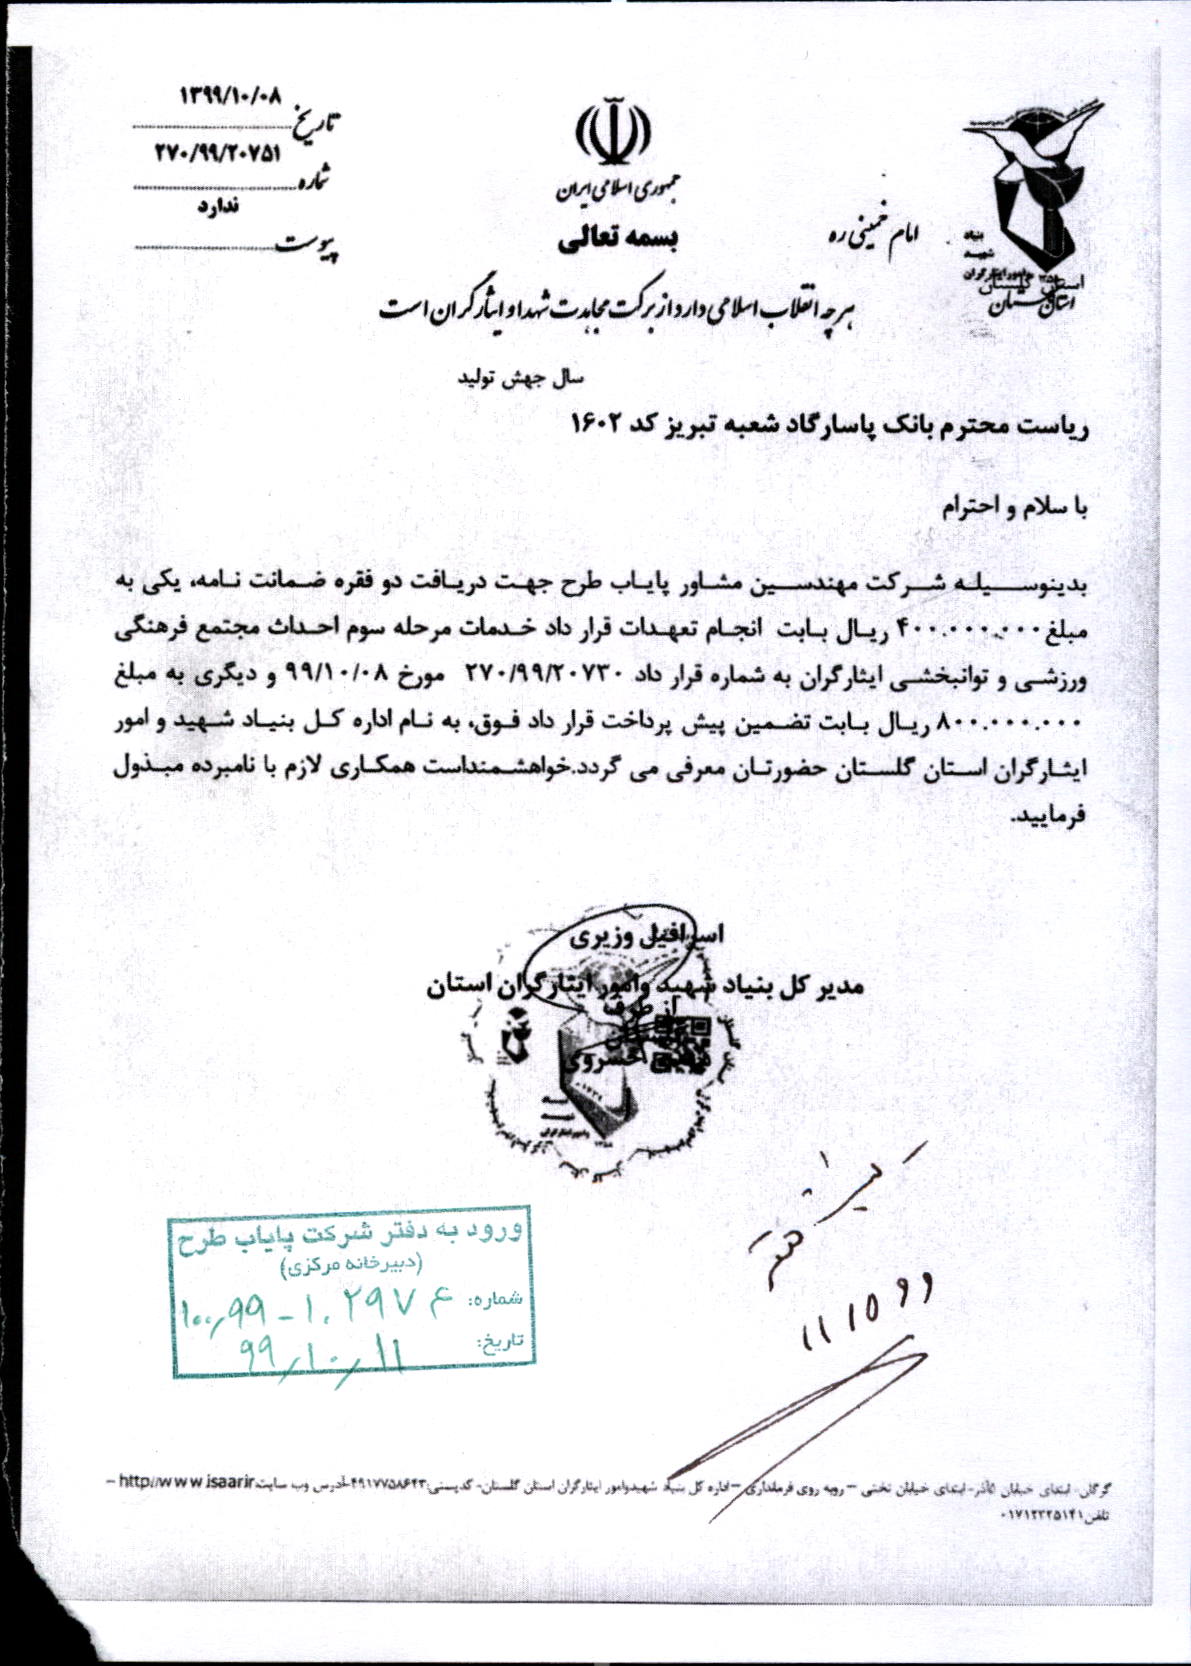 ۱۳۹۹/۱۰/۰۸
تاریخ
۲۷۰/۹۹/۲۰۷۵۱
شماره
ندارد
پیوست
جمهوری اسلامی ایران
بسمه تعالی
امام خمینی ره
بنیاد
شهید
وامور ایثارگران
استان گلستان
هر چه انقلاب اسلامی دارد از برکت مجاهدت شهدا و ایثارگران است
سال جهش تولید
ریاست محترم بانک پاسارگاد شعبه تبریز کد ۱۶۰۲
با سلام و احترام
بدینوسیله شرکت مهندسین مشاور پایاب طرح جهت دریافت دو فقره ضمانت نامه، یکی به
مبلغ ۴۰۰.۰۰۰.۰۰۰ ریال بابت انجام تعهدات قرار داد خدمات مرحله سوم احداث مجتمع فرهنگی
ورزشی و توانبخشی ایثارگران به شماره قرار داد ۲۷۰/۹۹/۲۰۷۳۰ مورخ ۹۹/۱۰/۰۸ و دیگری به مبلغ
۸۰۰.۰۰۰.۰۰۰ ریال بابت تضمین پیش پرداخت قرار داد فوق، به نام اداره کل بنیاد شهید و امور
ایثارگران استان گلستان حضورتان معرفی می گردد.خواهشمنداست همکاری لازم با نامبرده مبذول
فرمایید.
اسرافیل وزیری
مدیر کل بنیاد شهید وامور ایثارگران استان
از طرف
خسروی
ورود به دفتر شرکت پایاب طرح
(دبیرخانه مرکزی)
شماره:
تاریخ: ۹۹/۱۰/۱۱
گرگان- ابتدای خیابان ۵آذر- ابتدای خیابان تختی – روبه روی فرمانداری –اداره کل بنیاد شهیدوامور ایثارگران استان گلستان- کدپستی:۴۹۱۷۷۵۸۶۴۳-آدرس وب سایت:http//www.isaar.ir –
تلفن:۰۱۷۱۲۳۲۵۱۴۱